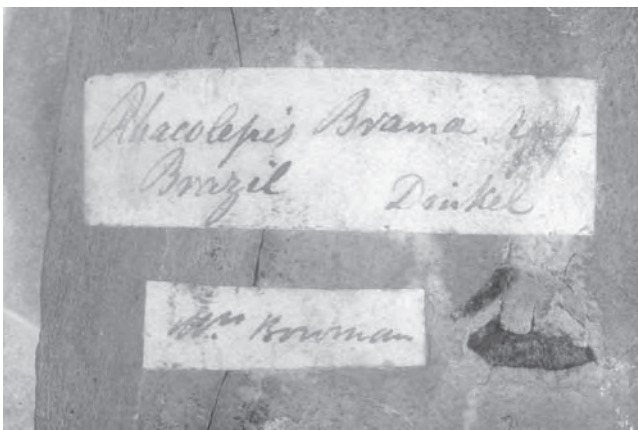 Rhacolepis Brama. Agf
Brazil Dinkel
Mrs Bowman